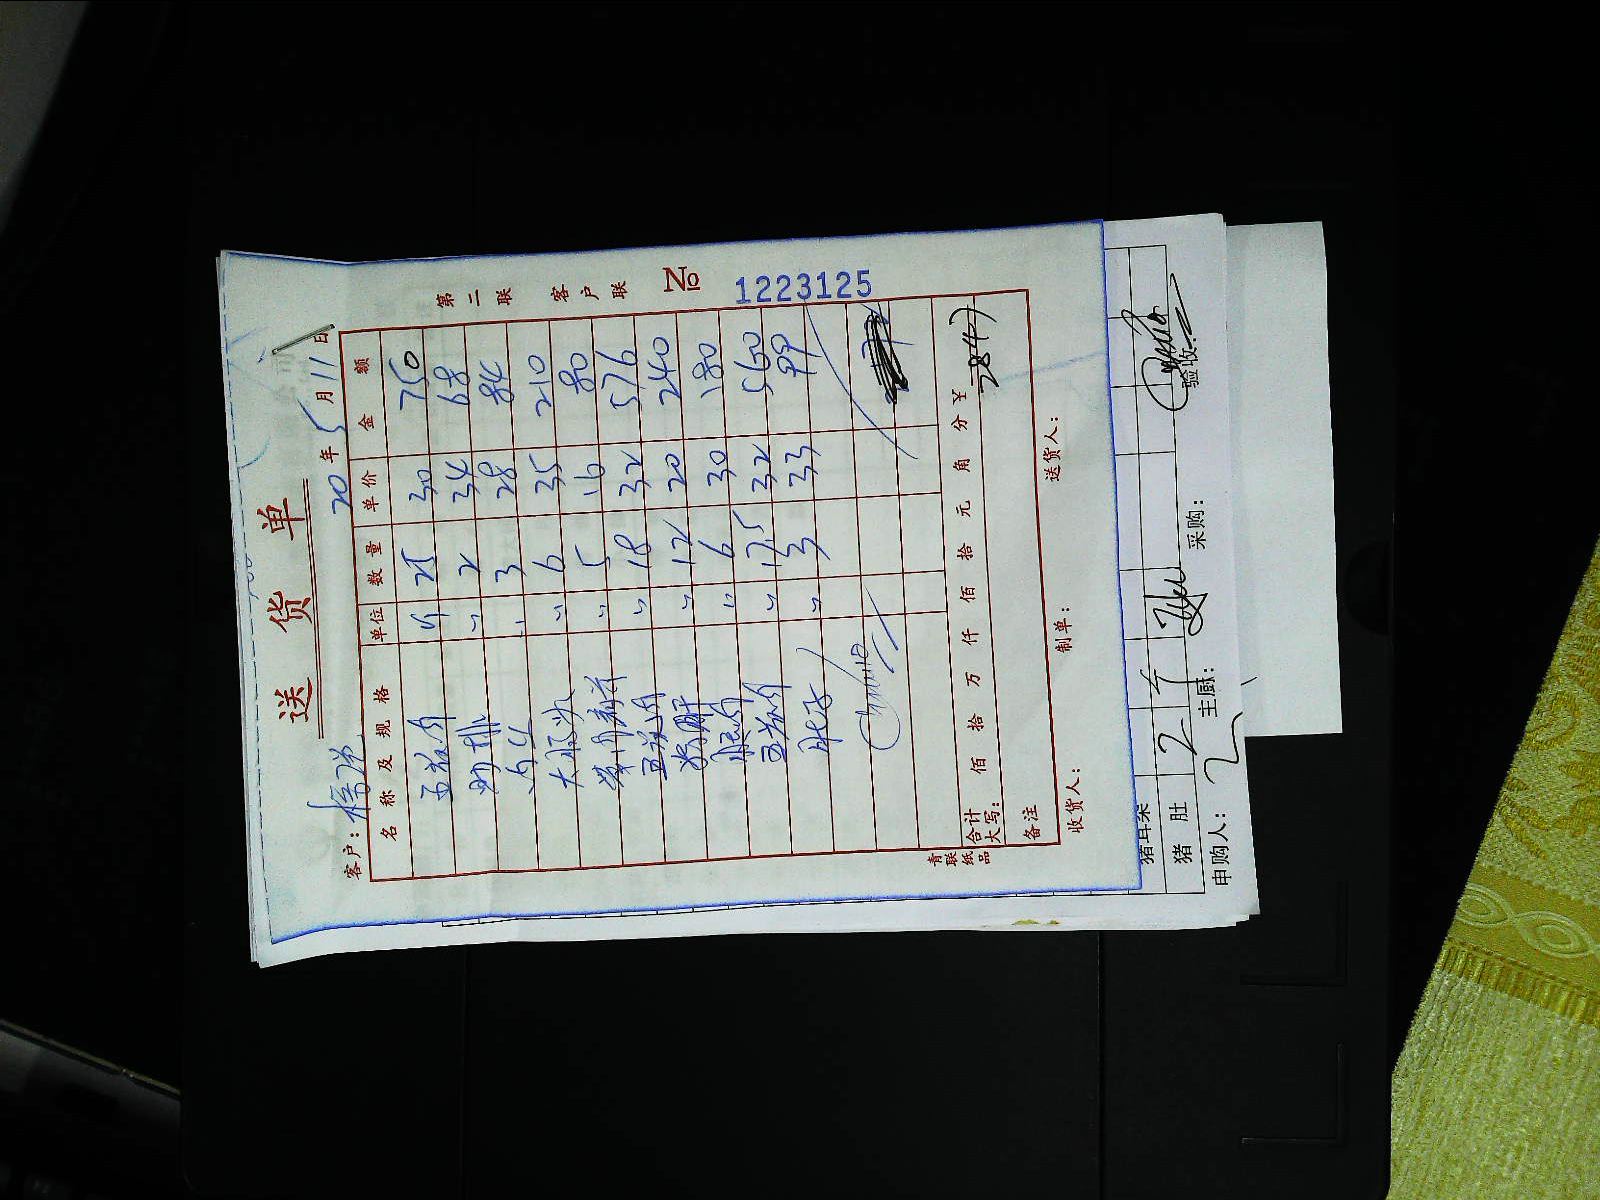 送 货 单
第二联 客户联 № 1223125
客户: 20 年 5 月 11 日
名 称 及 规 格 单位 数 量 单 价 金 额
五花肉 斤 25 30 750
排 〃 2 34 68
〃 3 28 84
大 〃 6 35 210
〃 5 16 80
五花肉 〃 18 32 576
肝 〃 12 20 240
肉 〃 6 30 180
五花肉 〃 17.5 32 560
肚子 〃 3 33 99
合计大写: 佰 拾 万 仟 佰 拾 元 角 分 ¥ 2847
备注
收货人: 制单: 送货人:
青联纸品
猪耳朵
猪 肚 2 斤
申购人: 主厨: 采购: 验收: